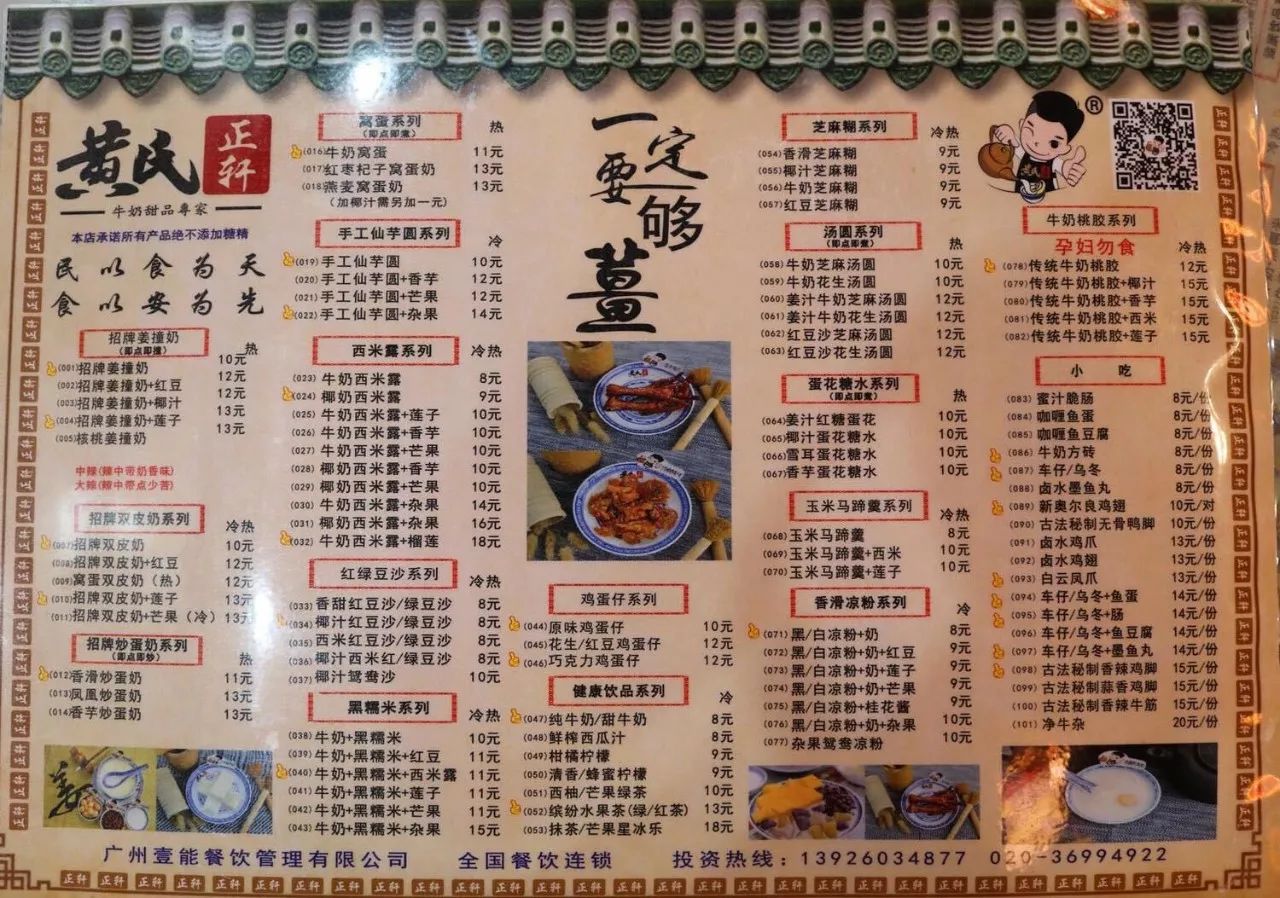 黄氏
正轩
牛奶甜品專家
本店承诺所有产品绝不添加糖精
民以食为天
食以安为先
招牌姜撞奶
(即点即撞)
热
(001)招牌姜撞奶 10元
(002)招牌姜撞奶+红豆 12元
(003)招牌姜撞奶+椰汁 12元
(004)招牌姜撞奶+莲子 13元
(005)核桃姜撞奶 13元
中辣(辣中带奶香味)
大辣(辣中带点少苦)
招牌双皮奶系列
冷热
(007)招牌双皮奶 10元
(008)招牌双皮奶+红豆 12元
(009)窝蛋双皮奶(热) 12元
(010)招牌双皮奶+莲子 13元
(011)招牌双皮奶+芒果(冷) 13元
招牌炒蛋奶系列
(即点即炒)
热
(012)香滑炒蛋奶 11元
(013)凤凰炒蛋奶 13元
(014)香芋炒蛋奶 13元
窝蛋系列
(即点即煮)
热
(016)牛奶窝蛋 11元
(017)红枣杞子窝蛋奶 13元
(018)燕麦窝蛋奶 13元
(加椰汁需另加一元)
手工仙芋圆系列
冷
(019)手工仙芋圆 10元
(020)手工仙芋圆+香芋 12元
(021)手工仙芋圆+芒果 12元
(022)手工仙芋圆+杂果 14元
西米露系列
冷热
(023)牛奶西米露 8元
(024)椰奶西米露 9元
(025)牛奶西米露+莲子 10元
(026)牛奶西米露+香芋 10元
(027)牛奶西米露+芒果 10元
(028)椰奶西米露+香芋 10元
(029)椰奶西米露+芒果 10元
(030)牛奶西米露+杂果 14元
(031)椰奶西米露+杂果 16元
(032)牛奶西米露+榴莲 18元
红绿豆沙系列
冷热
(033)香甜红豆沙/绿豆沙 8元
(034)椰汁红豆沙/绿豆沙 8元
(035)西米红豆沙/绿豆沙 8元
(036)椰汁西米红/绿豆沙 8元
(037)椰汁鸳鸯沙 10元
黑糯米系列
冷热
(038)牛奶+黑糯米 10元
(039)牛奶+黑糯米+红豆 11元
(040)牛奶+黑糯米+西米露 11元
(041)牛奶+黑糯米+莲子 11元
(042)牛奶+黑糯米+芒果 11元
(043)牛奶+黑糯米+杂果 15元
一定要够薑
鸡蛋仔系列
(044)原味鸡蛋仔 10元
(045)花生/红豆鸡蛋仔 12元
(046)巧克力鸡蛋仔 12元
健康饮品系列
冷
(047)纯牛奶/甜牛奶 8元
(048)鲜榨西瓜汁 8元
(049)柑橘柠檬 9元
(050)清香/蜂蜜柠檬 9元
(051)西柚/芒果绿茶 10元
(052)缤纷水果茶(绿/红茶) 13元
(053)抹茶/芒果星冰乐 18元
芝麻糊系列
冷热
(054)香滑芝麻糊 9元
(055)椰汁芝麻糊 9元
(056)牛奶芝麻糊 9元
(057)红豆芝麻糊 9元
汤圆系列
(即点即煮)
热
(058)牛奶芝麻汤圆 10元
(059)牛奶花生汤圆 10元
(060)姜汁牛奶芝麻汤圆 12元
(061)姜汁牛奶花生汤圆 12元
(062)红豆沙芝麻汤圆 12元
(063)红豆沙花生汤圆 12元
蛋花糖水系列
(即点即煮)
热
(064)姜汁红糖蛋花 10元
(065)椰汁蛋花糖水 10元
(066)雪耳蛋花糖水 10元
(067)香芋蛋花糖水 10元
玉米马蹄羹系列
冷热
(068)玉米马蹄羹 8元
(069)玉米马蹄羹+西米 10元
(070)玉米马蹄羹+莲子 10元
香滑凉粉系列
冷
(071)黑/白凉粉+奶 8元
(072)黑/白凉粉+奶+红豆 9元
(073)黑/白凉粉+奶+莲子 9元
(074)黑/白凉粉+奶+芒果 9元
(075)黑/白凉粉+桂花酱 9元
(076)黑/白凉粉+奶+杂果 10元
(077)杂果鸳鸯凉粉 10元
®
牛奶桃胶系列
孕妇勿食
冷热
(078)传统牛奶桃胶 12元
(079)传统牛奶桃胶+椰汁 15元
(080)传统牛奶桃胶+香芋 15元
(081)传统牛奶桃胶+西米 15元
(082)传统牛奶桃胶+莲子 15元
小吃
(083)蜜汁脆肠 8元/份
(084)咖喱鱼蛋 8元/份
(085)咖喱鱼豆腐 8元/份
(086)牛奶方砖 8元/份
(087)车仔/乌冬 8元/份
(088)卤水墨鱼丸 8元/份
(089)新奥尔良鸡翅 10元/对
(090)古法秘制无骨鸭脚 10元/份
(091)卤水鸡爪 13元/份
(092)卤水鸡翅 13元/份
(093)白云凤爪 13元/份
(094)车仔/乌冬+鱼蛋 14元/份
(095)车仔/乌冬+肠 14元/份
(096)车仔/乌冬+鱼豆腐 14元/份
(097)车仔/乌冬+墨鱼丸 14元/份
(098)古法秘制香辣鸡脚 15元/份
(099)古法秘制蒜香鸡脚 15元/份
(100)古法秘制香辣牛筋 15元/份
(101)净牛杂 20元/份
广州壹能餐饮管理有限公司 全国餐饮连锁 投资热线：13926034877 020-36994922